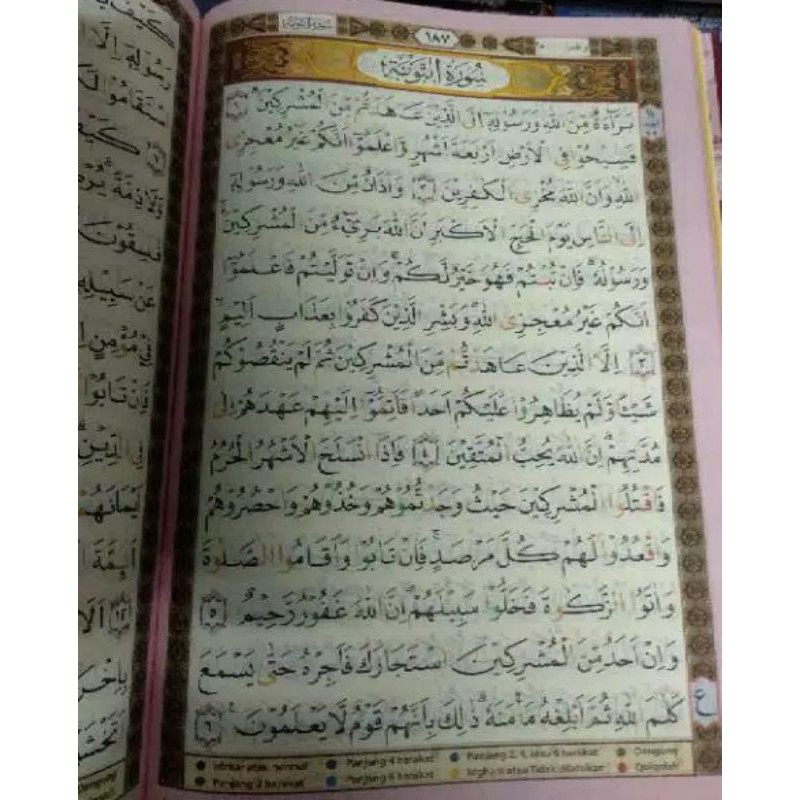 سُورَةُ التَّوْبَةِ
١٨٧
سُورَةُ التَّوْبَةِ
بَرَاۤءَةٌ مِّنَ اللّٰهِ وَرَسُوْلِهٖٓ اِلَى الَّذِيْنَ عَاهَدْتُّمْ مِّنَ الْمُشْرِكِيْنَ ۗ ١
فَسِيْحُوْا فِى الْاَرْضِ اَرْبَعَةَ اَشْهُرٍ وَّاعْلَمُوْٓا اَنَّكُمْ غَيْرُ مُعْجِزِى
اللّٰهِ وَاَنَّ اللّٰهَ مُخْزِى الْكٰفِرِيْنَ ٢ وَاَذَانٌ مِّنَ اللّٰهِ وَرَسُوْلِهٖٓ
اِلَى النَّاسِ يَوْمَ الْحَجِّ الْاَكْبَرِ اَنَّ اللّٰهَ بَرِيْۤءٌ مِّنَ الْمُشْرِكِيْنَ ۙ
وَرَسُوْلُهٗ ۗ فَاِنْ تُبْتُمْ فَهُوَ خَيْرٌ لَّكُمْ ۚ وَاِنْ تَوَلَّيْتُمْ فَاعْلَمُوْٓا
اَنَّكُمْ غَيْرُ مُعْجِزِى اللّٰهِ ۗ وَبَشِّرِ الَّذِيْنَ كَفَرُوْا بِعَذَابٍ اَلِيْمٍ ۙ
٣ اِلَّا الَّذِيْنَ عَاهَدْتُّمْ مِّنَ الْمُشْرِكِيْنَ ثُمَّ لَمْ يَنْقُصُوْكُمْ
شَيْـًٔا وَّلَمْ يُظَاهِرُوْا عَلَيْكُمْ اَحَدًا فَاَتِمُّوْٓا اِلَيْهِمْ عَهْدَهُمْ اِلٰى
مُدَّتِهِمْ ۗ اِنَّ اللّٰهَ يُحِبُّ الْمُتَّقِيْنَ ٤ فَاِذَا انْسَلَخَ الْاَشْهُرُ الْحُرُمُ
فَاقْتُلُوا الْمُشْرِكِيْنَ حَيْثُ وَجَدْتُّمُوْهُمْ وَخُذُوْهُمْ وَاحْصُرُوْهُمْ
وَاقْعُدُوْا لَهُمْ كُلَّ مَرْصَدٍ ۚ فَاِنْ تَابُوْا وَاَقَامُوا الصَّلٰوةَ
وَاٰتَوُا الزَّكٰوةَ فَخَلُّوْا سَبِيْلَهُمْ ۗ اِنَّ اللّٰهَ غَفُوْرٌ رَّحِيْمٌ ٥
وَاِنْ اَحَدٌ مِّنَ الْمُشْرِكِيْنَ اسْتَجَارَكَ فَاَجِرْهُ حَتّٰى يَسْمَعَ
كَلٰمَ اللّٰهِ ثُمَّ اَبْلِغْهُ مَأْمَنَهٗ ۗ ذٰلِكَ بِاَنَّهُمْ قَوْمٌ لَّا يَعْلَمُوْنَ ࣖ ٦
ع
Panjang 4 harakat
Panjang 2, 4, atau 6 harakat
Dengung
Panjang 2 harakat
Panjang 6 harakat
Idgham atau Tidak dibacakan
Qalqalah
كَيْفَ
رَسُوْلِهٖٓ اِلَّا
كَيْفَ
فٰسِقُوْنَ
عَنْ سَبِيْلِهٖ
فِيْ مُؤْمِنٍ
فَاِنْ تَابُوْا
فِى الدِّيْنِ ۗ
اَيْمَانَهُمْ
اَىِٕمَّةَ
١٢ اَلَا